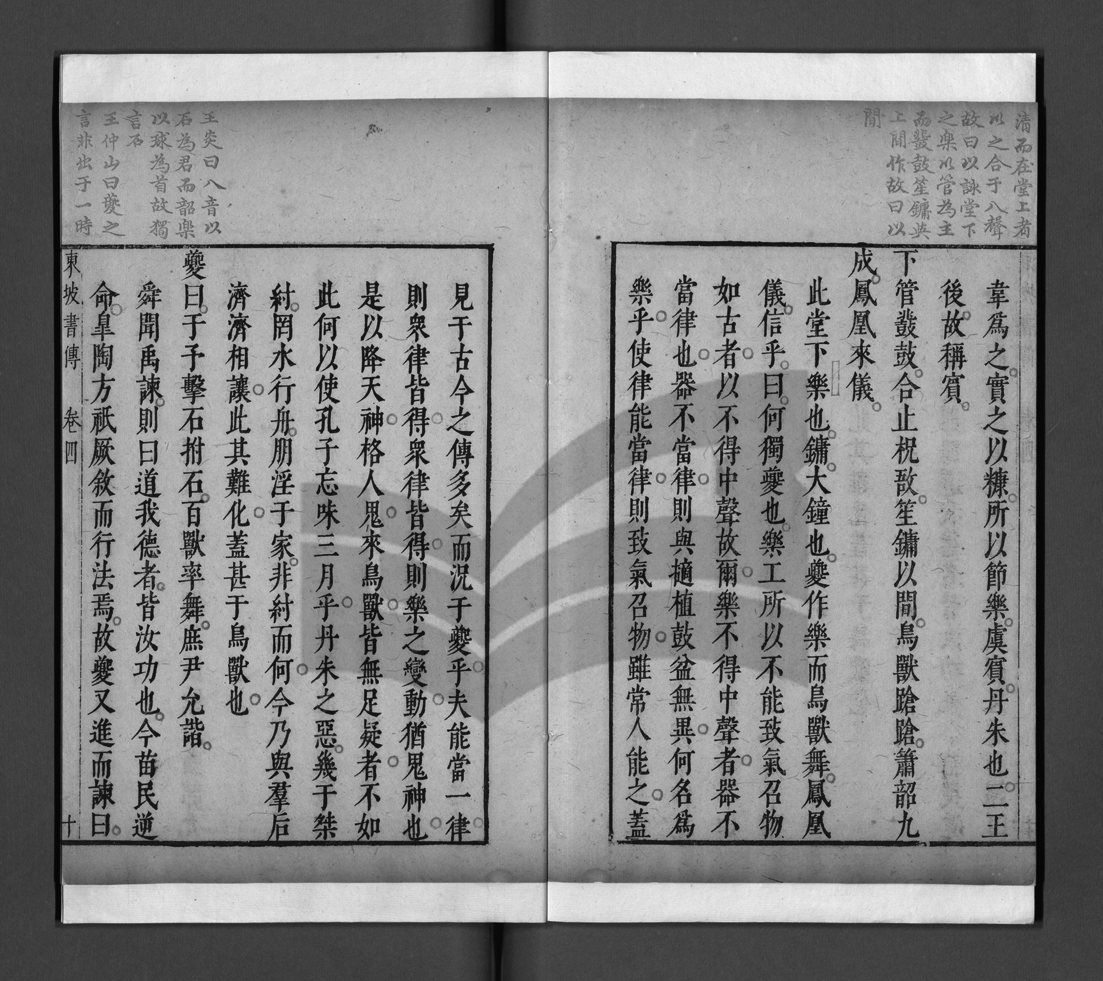 清而在堂上者
以之合于八聲
故曰以詠堂下
之樂以管為主
而鼗鼓笙鏞共
上間作故曰以
間
韋爲之實之以糠所以節樂虞賓丹朱也二王
後故稱賓
下管鼗鼓合止柷敔笙鏞以間鳥獸蹌蹌簫韶九
成鳳凰來儀
此堂下樂也鏞大鐘也夔作樂而鳥獸舞鳳凰
儀信乎曰何獨夔也樂工所以不能致氣召物
如古者以不得中聲故爾樂不得中聲者器不
當律也器不當律則與擿植鼓盆無異何名爲
樂乎使律能當律則致氣召物雖常人能之蓋
王炎曰八音以
石為君而韶樂
以球為首故獨
言石
王仲山曰夔之
言非出于一時
見于古今之傳多矣而況于夔乎夫能當一律
則衆律皆得衆律皆得則樂之變動猶鬼神也
是以降天神格人鬼來鳥獸皆無足疑者不如
此何以使孔子忘味三月乎丹朱之惡幾于桀
紂罔水行舟朋淫于家非紂而何今乃與羣后
濟濟相讓此其難化蓋甚于鳥獸也
夔曰於予擊石拊石百獸率舞庶尹允諧
舜聞禹諫則曰道我德者皆汝功也今苗民逆
命皐陶方祇厥敘而行法焉故夔又進而諫曰
東坡書傳 卷四 十